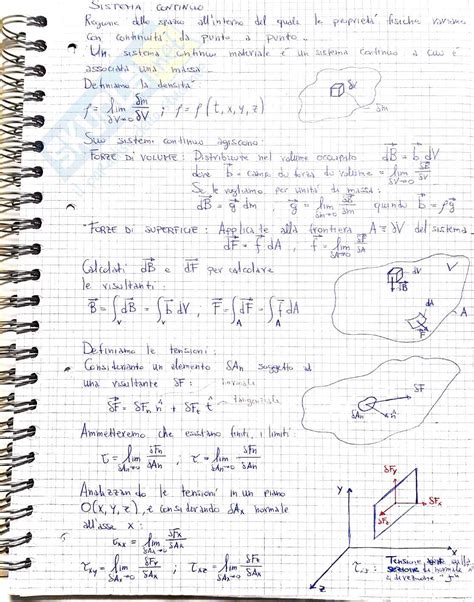 SISTEMA CONTINUO
Regione dello spazio all'interno del quale le proprietà fisiche variano
con continuità da punto a punto.
Un sistema continuo materiale è un sistema continuo a cui è
associata una massa.
Definiamo la densità
ρ = lim δV→0 δm/δV ; ρ = ρ(t, x, y, z)
δV
δm
Sui sistemi continui agiscono:
FORZE DI VOLUME: Distribuite nel volume occupato dB = b dV
dove b = campo di forza di volume = lim δV→0 δB/δV
Se le vogliamo per unità di massa:
dB = g dm, g = lim δm→0 δB/δm quando b = ρg
FORZE DI SUPERFICIE: Applicate alla frontiera A ≡ ∂V del sistema
dF = f dA, f = lim δA→0 δF/δA
Calcolati dB e dF per calcolare
le risultanti:
B = ∫V dB = ∫V b dV ; F = ∫A dF = ∫A f dA
dV
V
dB
dA
F
Definiamo le tensioni:
Considerando un elemento δAn soggetto ad
una risultante δF: normale
δF = δFn n + δFt t tangenziale
δF
δAn
n
Ammetteremo che esistano finiti, i limiti
τ = lim δAn→0 δFn/δAn ; τ = lim δAn→0 δFt/δAn
Analizzando le tensioni in un piano
O(x, y, z), e considerando δAx normale
all'asse x:
τxx = lim δAx→0 δFx/δAx
τxy = lim δAx→0 δFy/δAx ; τxz = lim δAx→0 δFz/δAx
y
δFy
δFx
δFz
x
z
τij: Tensione
di normale "i"
e direzione "j"